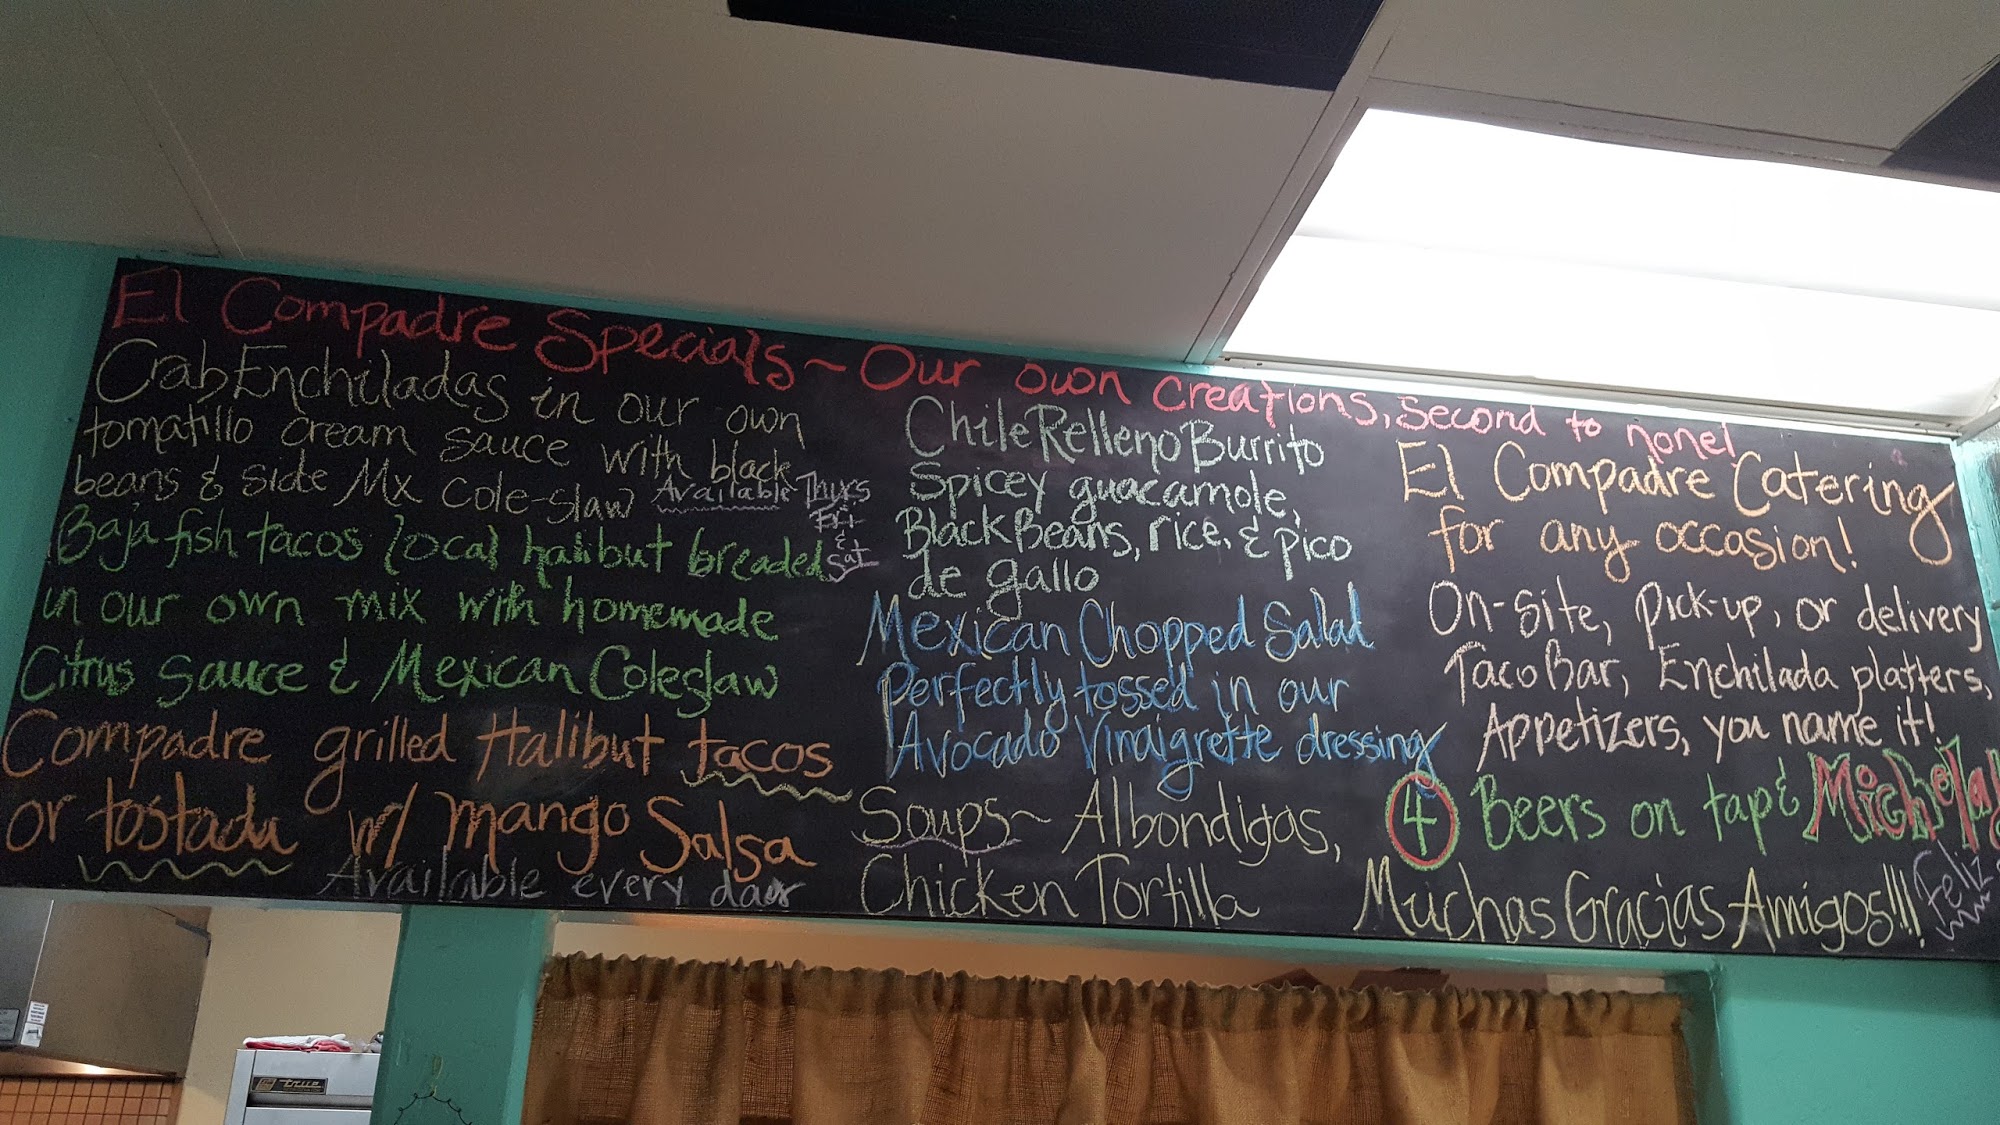 El Compadre Specials ~ Our own creations, second to none!
Crab Enchiladas in our own
tomatillo cream sauce with black
beans & side Mx Cole-slaw Available Thurs
Fri
& 
Sat
Baja fish tacos local halibut breaded
in our own mix with homemade
Citrus sauce & Mexican Coleslaw
Compadre grilled Halibut tacos
or tostada w/ mango Salsa
Available every day
Chile Relleno Burrito
Spicey guacamole,
Black Beans, rice, & pico
de gallo
Mexican Chopped Salad
Perfectly tossed in our
Avocado Vinaigrette dressing
Soups ~ Albondigas,
Chicken Tortilla
El Compadre Catering
for any occasion!
On-site, pick-up, or delivery
Taco Bar, Enchilada platters,
Appetizers, you name it!
4 Beers on tap & Michelada
Muchas Gracias Amigos!!!
Feliz
true